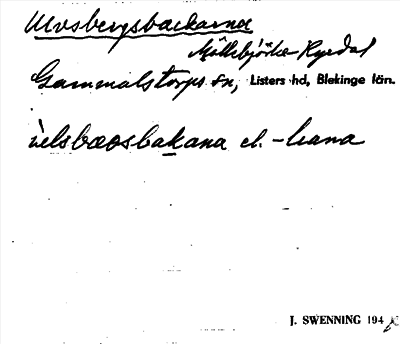 Ulvsbergsbackarna
Mällebjörke Ryedal
Gammalstorps sn, Listers hd, Blekinge län.
ùlsbæosbakana el. -hana
J. SWENNING 194